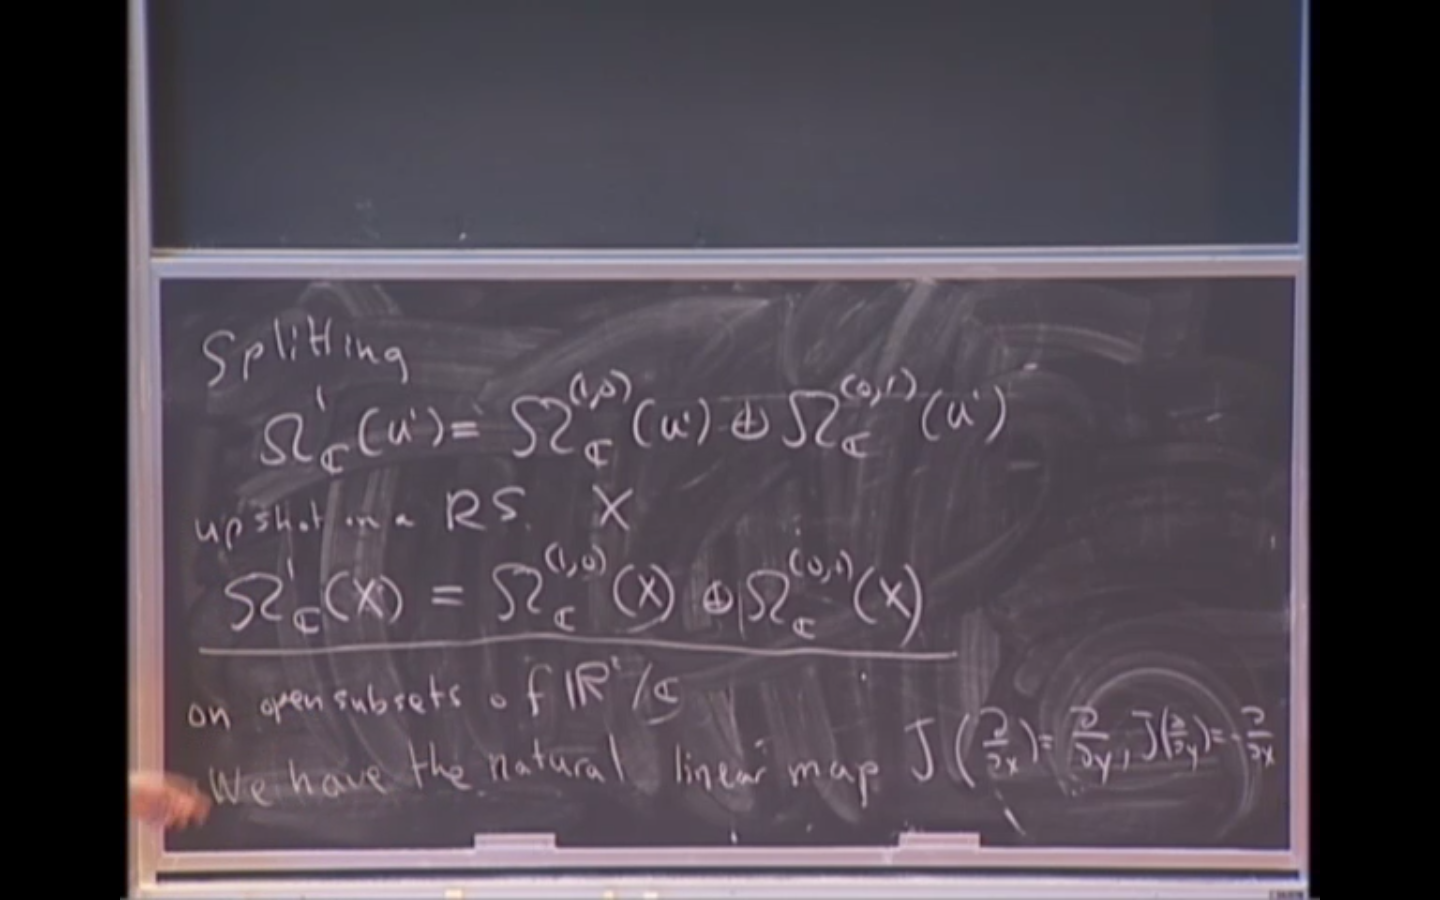 Splitting
Ω¹_ℂ(U') = Ω^(1,0)_ℂ(U') ⊕ Ω^(0,1)_ℂ(U')
upshot on a RS. X
Ω¹_ℂ(X) = Ω^(1,0)_ℂ(X) ⊕ Ω^(0,1)_ℂ(X)
on open subsets of ℝ²/ℂ
We have the natural linear map J(∂/∂x) = ∂/∂y, J(∂/∂y) = -∂/∂x